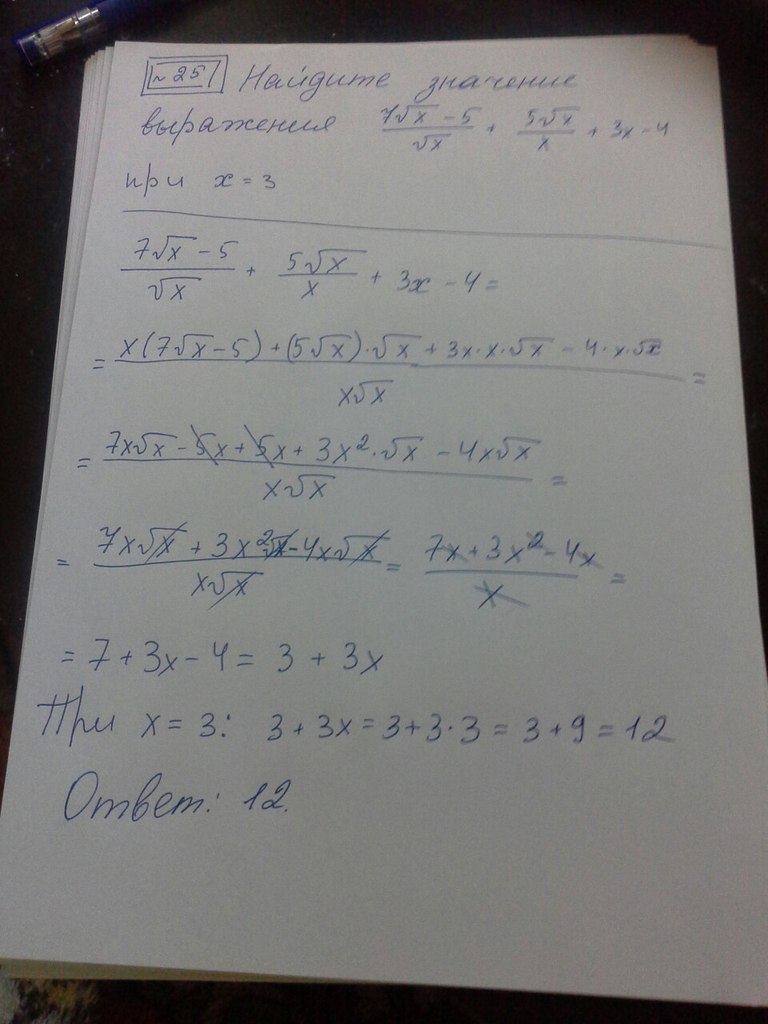 № 25 Найдите значение
выражения (7√x - 5)/√x + 5√x/x + 3x - 4
при x = 3
(7√x - 5)/√x + 5√x/x + 3x - 4 =
= (x(7√x - 5) + (5√x)·√x + 3x·x·√x - 4·x·√x)/(x√x) =
= (7x√x - 5x + 5x + 3x²·√x - 4x√x)/(x√x) =
= (7x√x + 3x²√x - 4x√x)/(x√x) = (7x + 3x² - 4x)/x =
= 7 + 3x - 4 = 3 + 3x
При x = 3: 3 + 3x = 3 + 3·3 = 3 + 9 = 12
Ответ: 12.